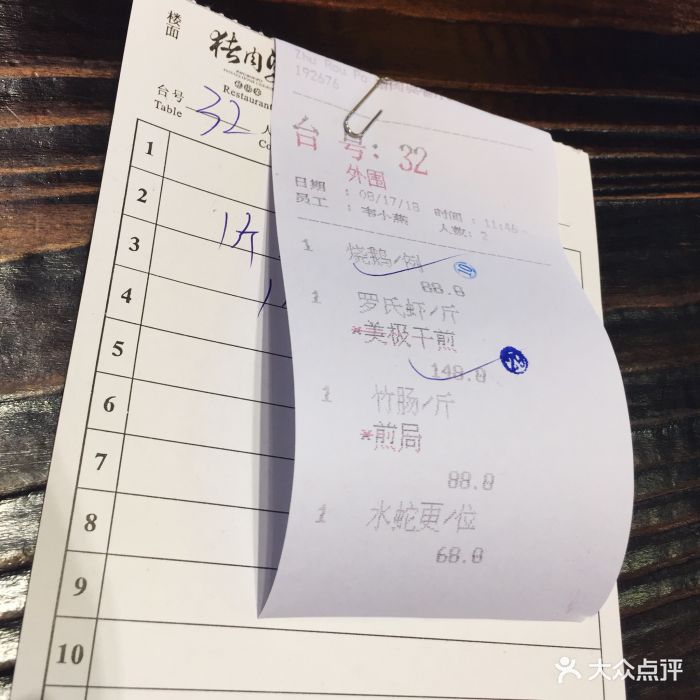 楼面
猪肉
Restaurant
台号
Table
32
1
2
3
4
5
6
7
8
9
10
Zhu Rou Po
192676
台号: 32
外围
日期 : 08/17/18 时间 : 11:46
员工 : 韦小燕 人数: 2
1 烧鹅/例
88.0
1 罗氏虾/斤
*美极干煎
148.0
1 竹肠/斤
*煎局
88.0
1 水蛇更/位
68.0
大众点评